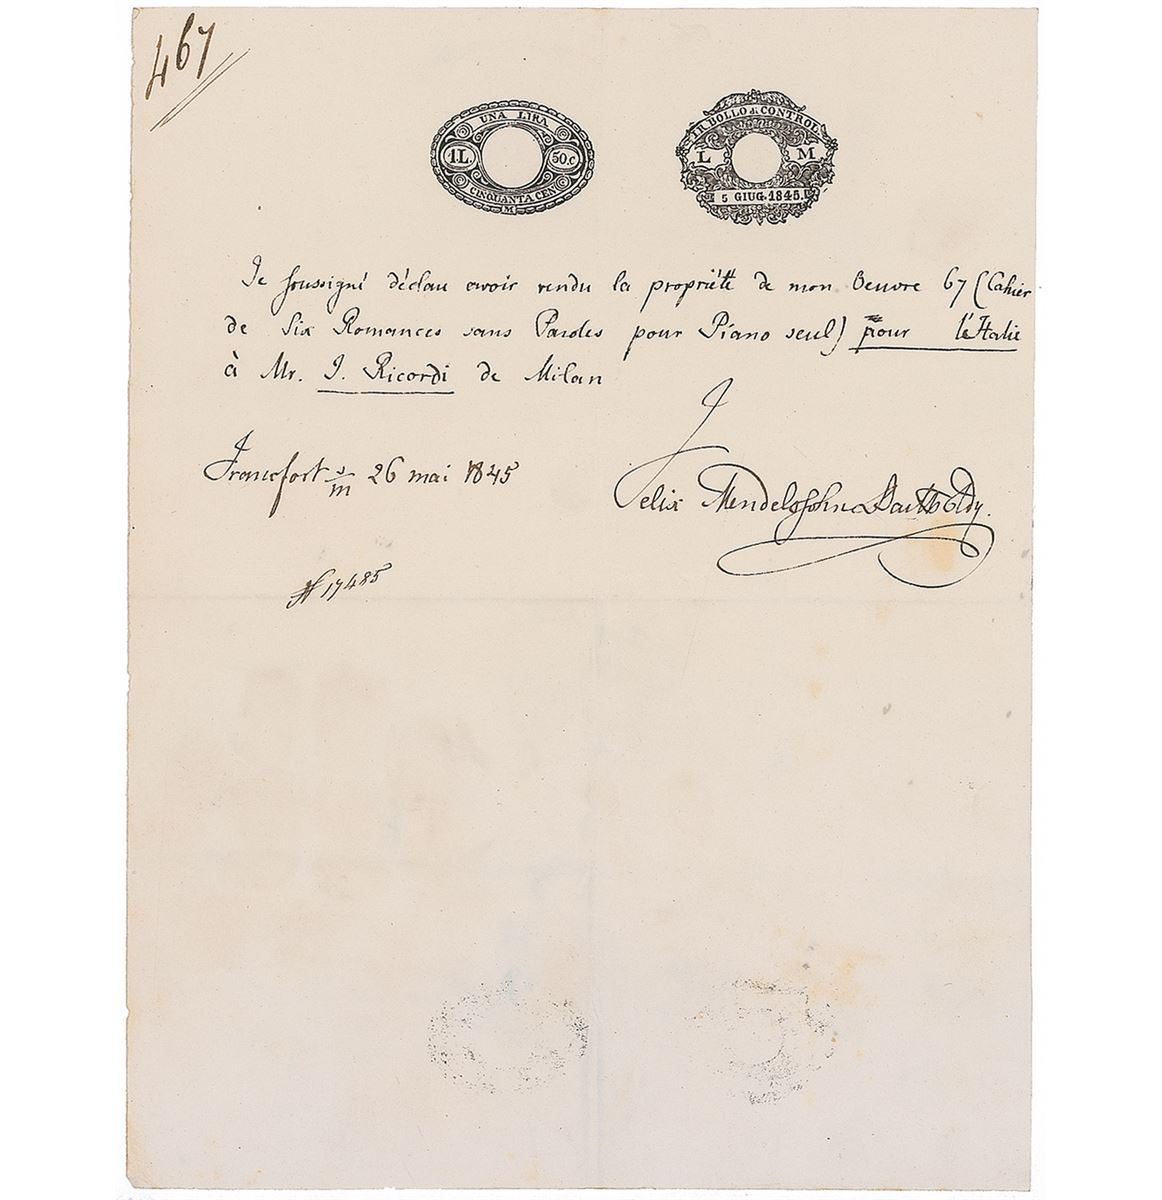 467
UNA LIRA
1.L. 50.c
CINQUANTA CEN
M
I.R. BOLLO di CONTROL
L M
5 GIUG. 1845.
Je soussigné déclare avoir vendu la propriété de mon Oeuvre 67 (Cahier
de Six Romances sans Paroles pour Piano seul) pour l'Italie
à Mr. J. Ricordi de Milan
Francfort s/m 26 mai 1845
Felix Mendelssohn Bartholdy.
N 17485